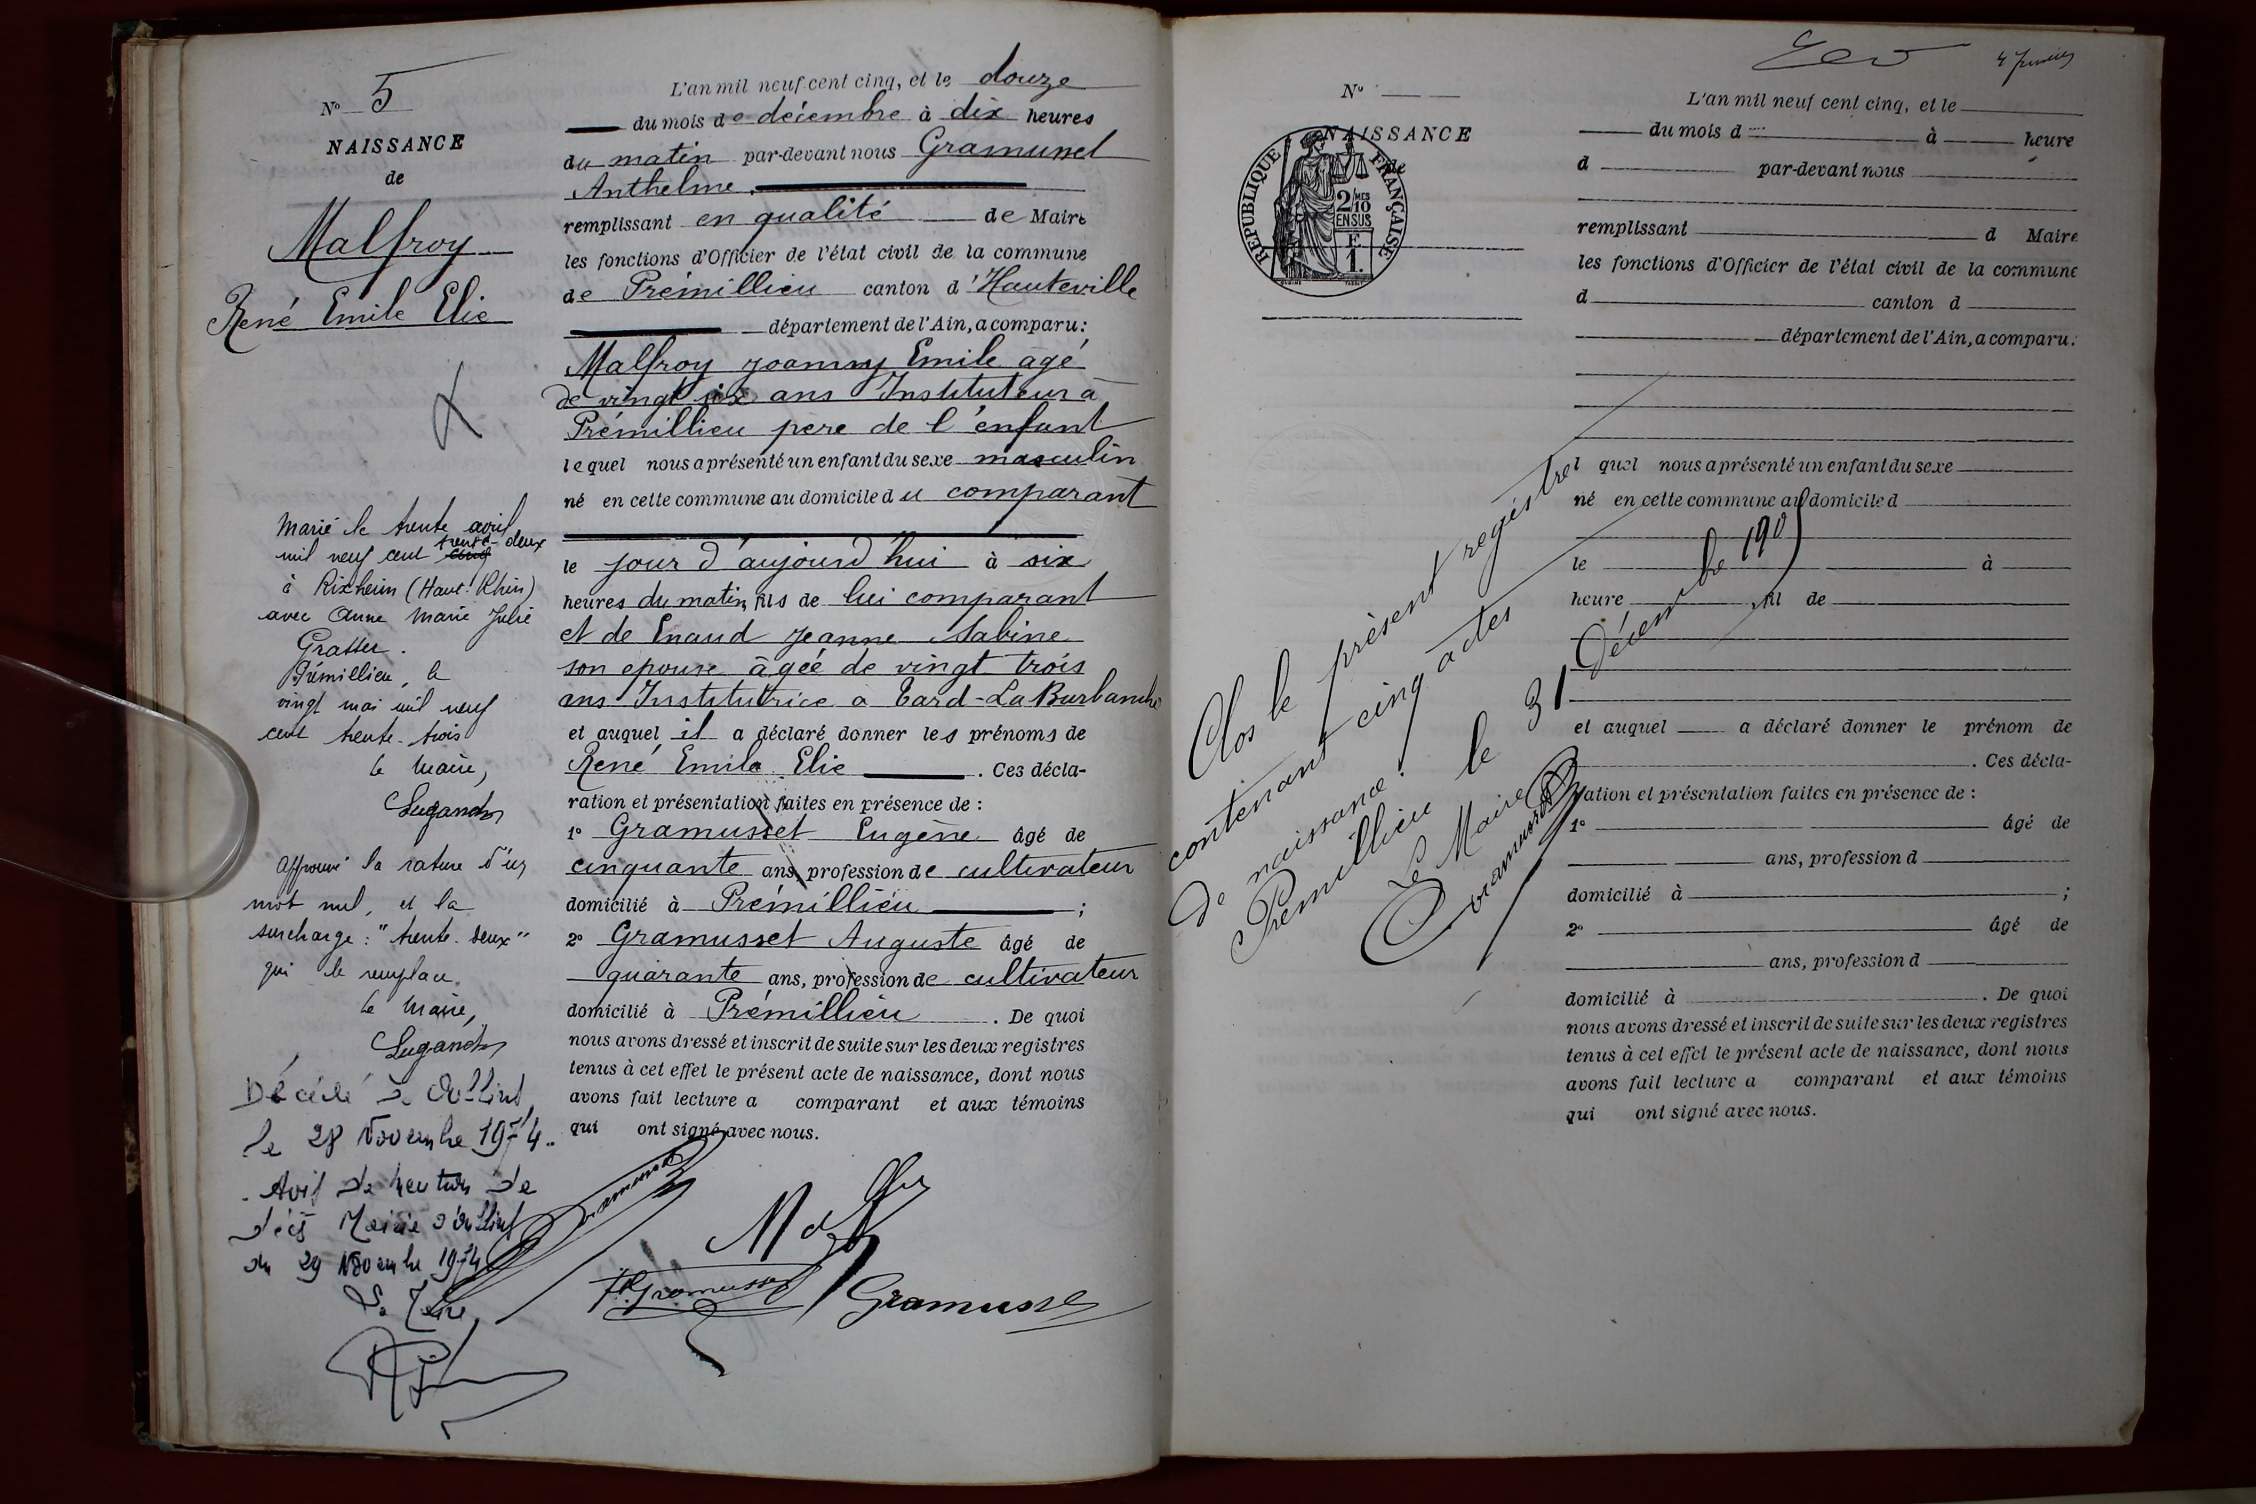 N° 5
NAISSANCE
de
Malfroy
René Emile Elie
Marié le trente avril
mil neuf cent cinq trente-deux
à Rixheim (Haut-Rhin)
avec Anne Marie Julie
Grasser.
Prémillieu, le
vingt mai mil neuf
cent trente-trois
Le Maire,
Lugand
Approuvé la rature d'un
mot nul, et la
surcharge : "trente-deux"
qui le remplace.
Le Maire,
Lugand
Décédé à Oullins,
le 28 Novembre 1974.
Avis de mention de
décès Mairie d'Oullins
du 29 Novembre 1974
Le Maire,
L'an mil neuf cent cinq, et le douze
du mois de décembre à dix heures
du matin par-devant nous Gramusset
Anthelme
remplissant en qualité de Maire
les fonctions d'Officier de l'état civil de la commune
de Prémillieu canton d'Hauteville
département de l'Ain, a comparu :
Malfroy Joanny Emile âgé
de vingt six ans Instituteur à
Prémillieu père de l'enfant
lequel nous a présenté un enfant du sexe masculin
né en cette commune au domicile du comparant
le jour d'aujourd'hui à six
heures du matin, fils de lui comparant
et de Enaud Jeanne Sabine
son épouse âgée de vingt trois
ans Institutrice à La Burbanche
et auquel il a déclaré donner les prénoms de
René Emile Elie . Ces décla-
ration et présentation faites en présence de :
1° Gramusset Eugène âgé de
cinquante ans, profession de cultivateur
domicilié à Prémillieu ;
2° Gramusset Auguste âgé de
quarante ans, profession de cultivateur
domicilié à Prémillieu . De quoi
nous avons dressé et inscrit de suite sur les deux registres
tenus à cet effet le présent acte de naissance, dont nous
avons fait lecture a comparant et aux témoins
qui ont signé avec nous.
Gramusset
Malfroy
Gramusset
Gramusset
4 Janvier
N°
NAISSANCE
de
RÉPUBLIQUE FRANÇAISE
2/10 MES
EN SUS
F
1.
L'an mil neuf cent cinq, et le
du mois d à heure
d par-devant nous
remplissant d Maire
les fonctions d'Officier de l'état civil de la commune
d canton d
département de l'Ain, a comparu :
l quel nous a présenté un enfant du sexe
né en cette commune au domicile d
le à
heure , fil de
et auquel a déclaré donner le prénom de
. Ces décla-
ration et présentation faites en présence de :
1° âgé de
ans, profession d
domicilié à ;
2° âgé de
ans, profession d
domicilié à . De quoi
nous avons dressé et inscrit de suite sur les deux registres
tenus à cet effet le présent acte de naissance, dont nous
avons fait lecture a comparant et aux témoins
qui ont signé avec nous.
Clos le présent registre
contenant cinq actes
de naissance.
Prémillieu le 31 Décembre 1905
Le Maire
Gramusset